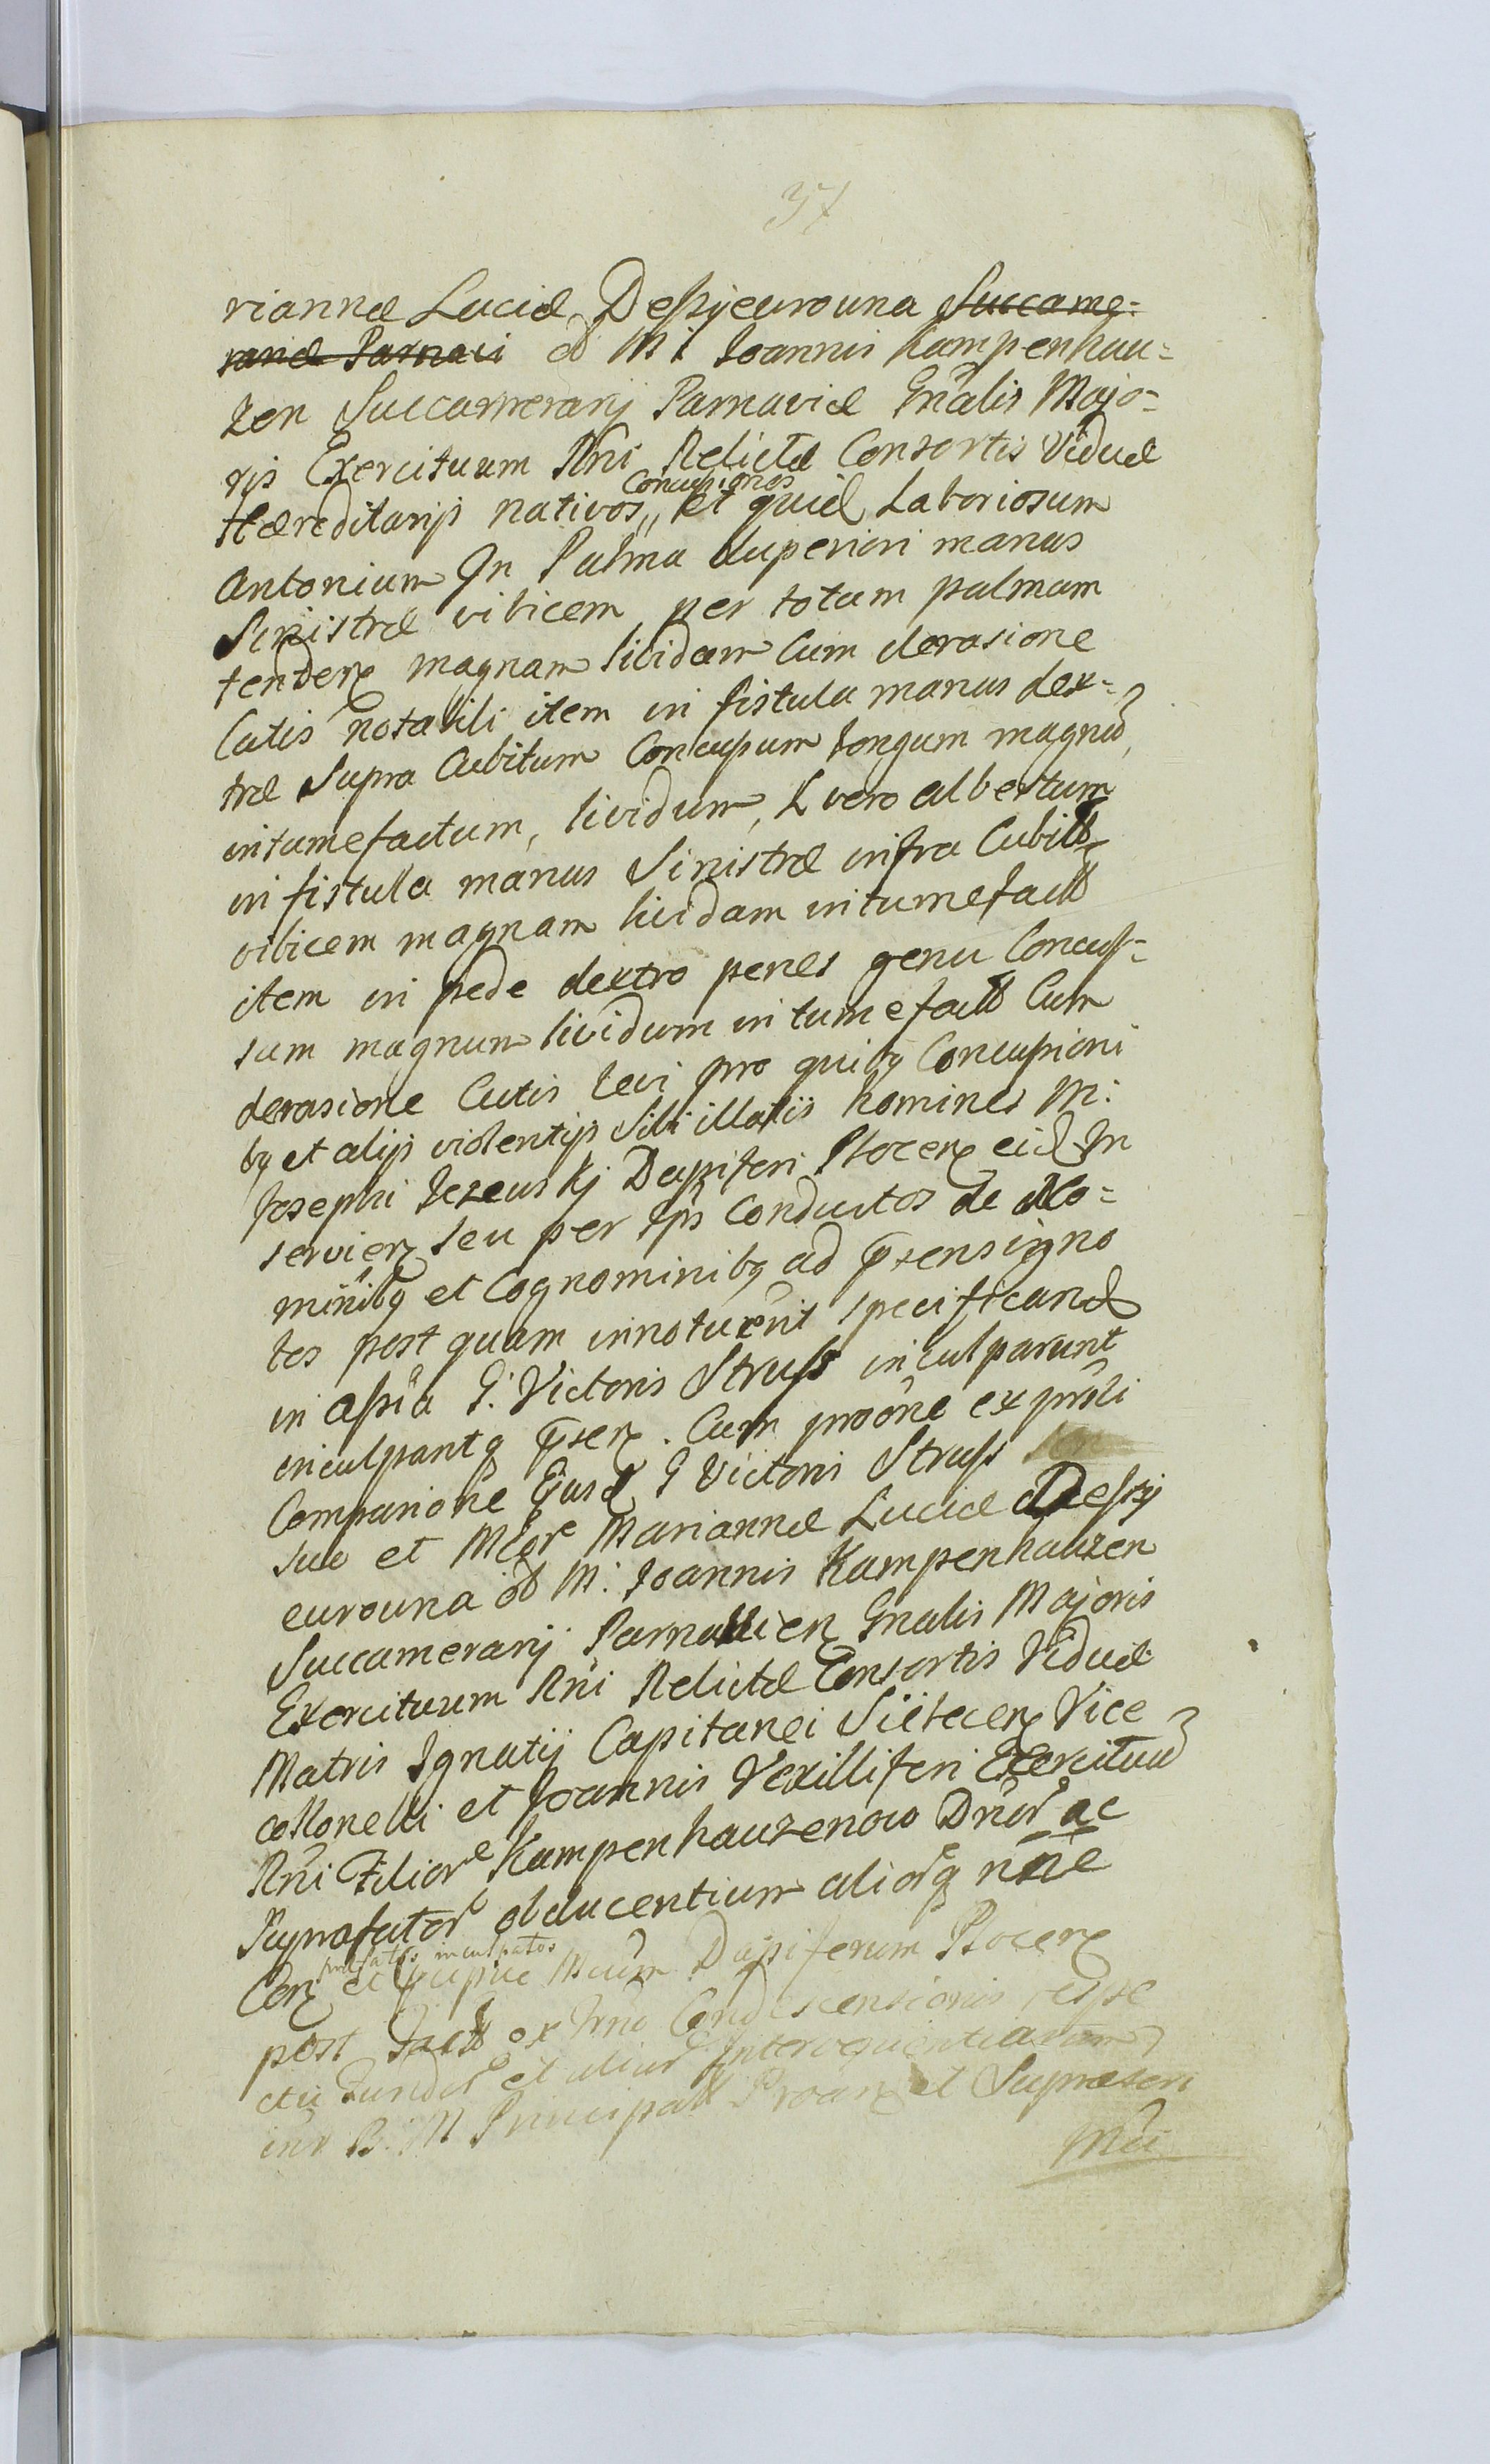 37
riannæ Luciæ Despijeurouna Succame-
rariæ Parnavi ol M: Ioannis Kampenhau-
zen Succamerarij Parnaviæ Gnalis Majo-
ris Exercituum Rni Relictæ Consortis Viduæ
Concussiones
Hæreditarijs nativos,, et quid Laboriosum
Antonium In Palma superiori manus
Sinistræ vibicem per totam palmam
tenden magnam lividam Cum derasione
Cutis notabili item in fistula manus dex-
træ Supra Cubitum Concussum longum magnu
intumefactum, lividum, L vero albertum
in fistula manus Sinistræ infra Cubitt
vibicem magnam lividam intumefactt
item in pede dextro penes genu Concus-
sum magnum lividum intumefactt Cum
derasione Cutis levi pro quibq Concussioni
bq et alijs violentijs Sibi illatis homines M:
Josephi Jezeuskj Dapiferi Plocen eid In
servien seu per Ips Conductos de No-
minibq et Cognominibq ad psens igno
tos post quam innotuerit specificand
in assia G: Victoris Struss inculparunt
inculpantq psen. Cum proone ex pnli
Comparione Ejusd G Victoris Struss
suo et Mcor Mariannæ Luciæ Despij
eurouna ol M: Ioannis Kampenhauzen
Succamerarij Parnavien Gnalis Majoris
Exercituum Rni Relictæ Consortis Viduæ
Matris Ignatij Capitanei Siltecen Vice
collonelli et Joannis Vexilliferi Exercituu
Rni Filior Kampenhauzenow Dnor ac
Suprafator obducentium aliorq nne
præfatos inculpatos
Con et pcipue Mcum Dapiferum Plocen
post fact ex Condescensionis
et alior
B. M Principalt et Supræscri
Mci